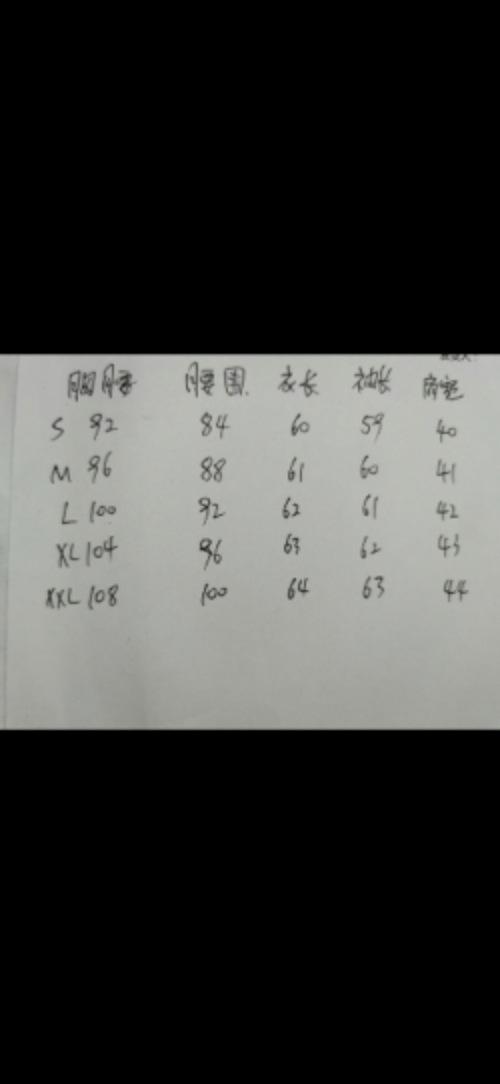 胸腰 腰围 衣长 袖长 肩宽
S 92 84 60 59 40
M 96 88 61 60 41
L 100 92 62 61 42
XL 104 96 63 62 43
XXL 108 100 64 63 44